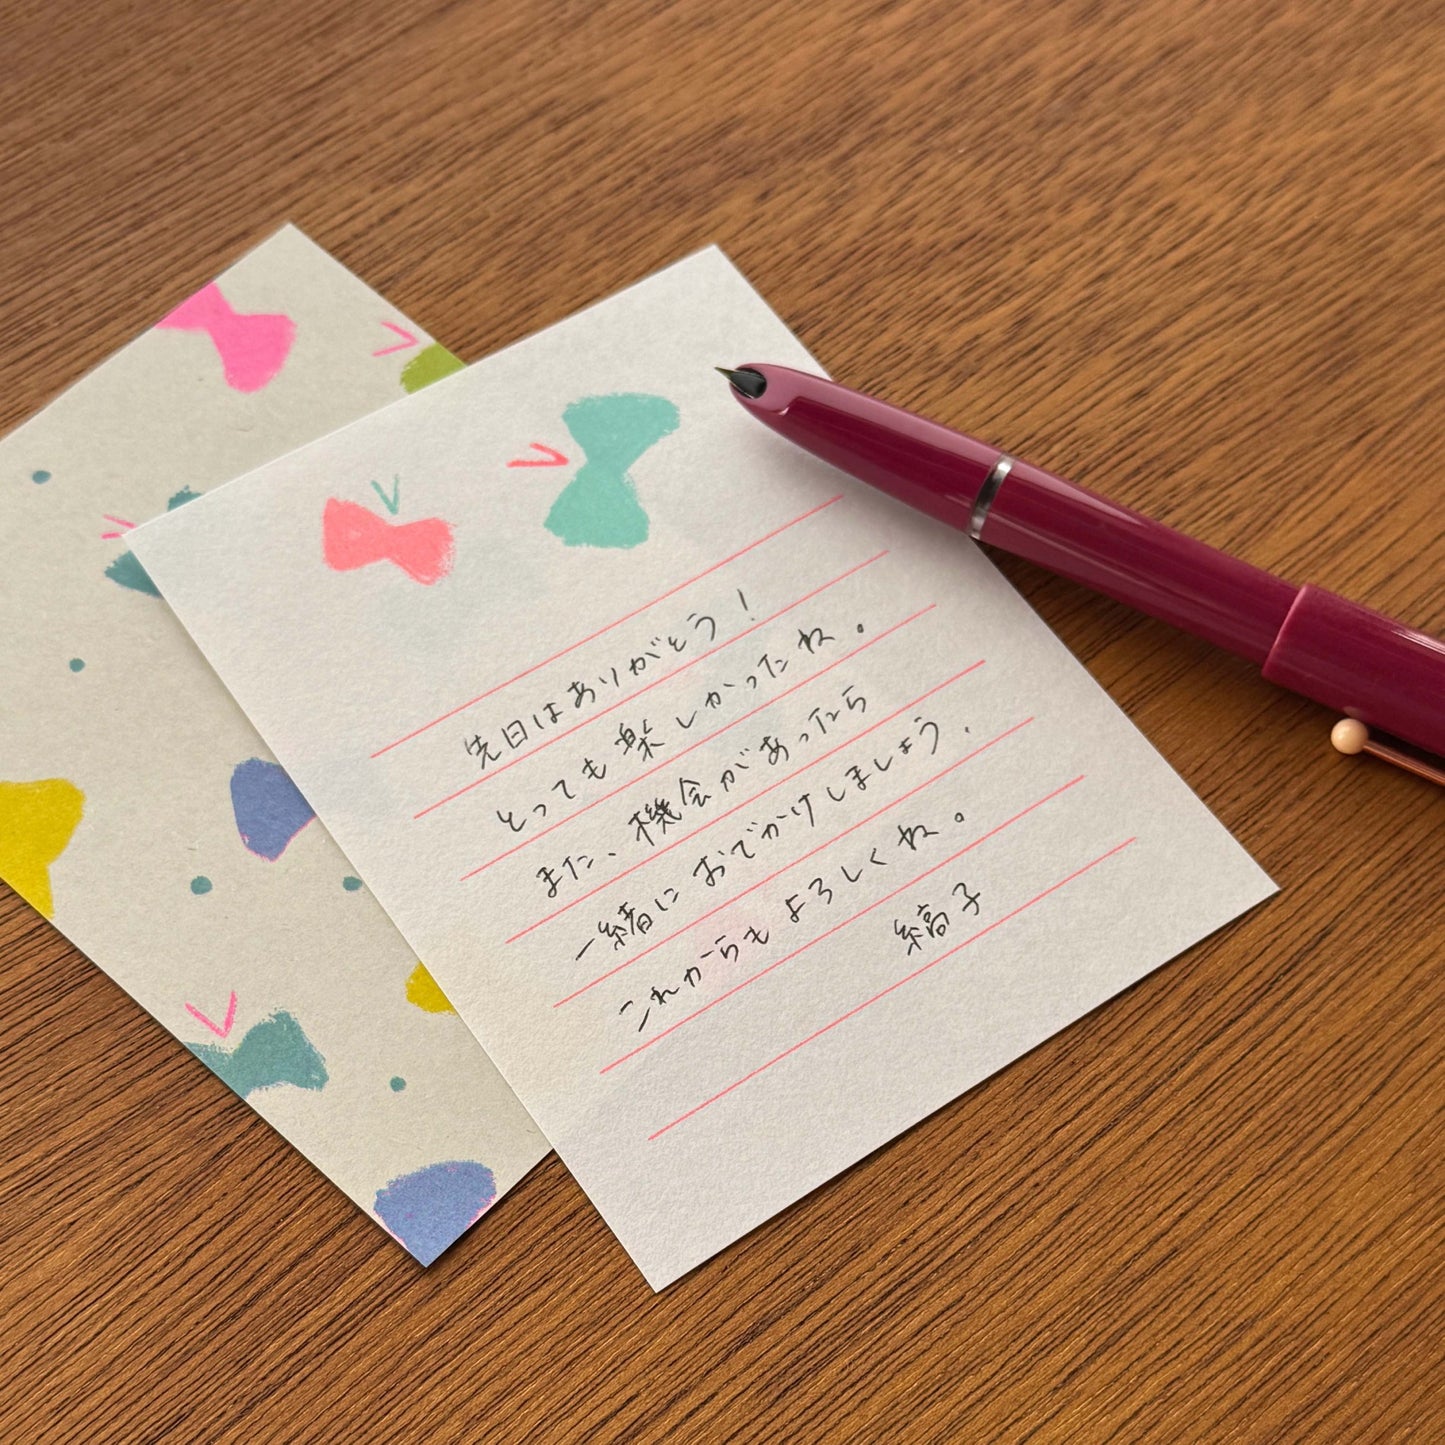 先日はありがとう!
とっても楽しかったね。
また、機会があったら
一緒におでかけしましょう.
これからもよろしくね。
縞子